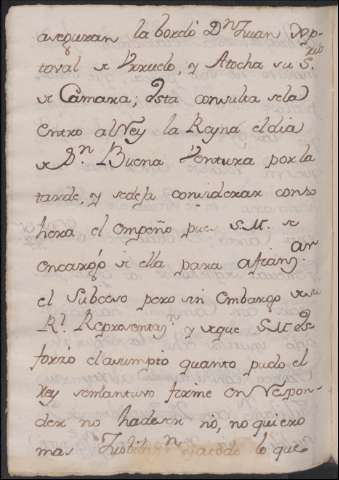 aseguran la bordó D.ⁿ Juan Xp.
toval de Urruelo, y Atocha su S.rio
de Camara; esta consulta se la
entro al Rey la Reyna el dia
de D.ⁿ Buena Ventura por la
tarde, y se deja considerar como
hera el empeño pues S.M. se
encargó de ella para afianzar
el Subceso pero sin embargo de su
R.l Representaz.n y de que S.M. es-
forzo el asumpto quanto pudo el
Rey se mantuvo firme en Respon-
der no ha de ser no, no quiero
mas